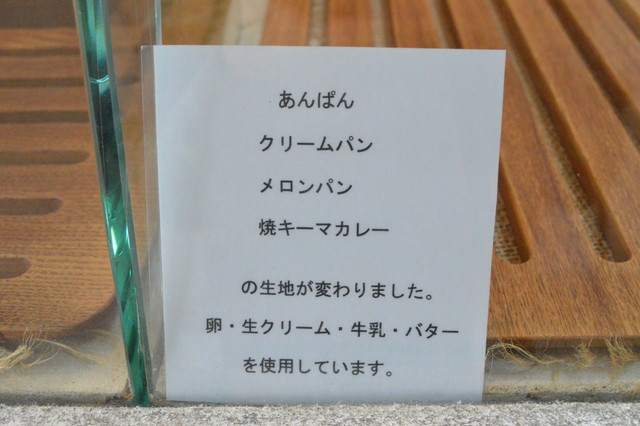 あんぱん
クリームパン
メロンパン
焼キーマカレー
の生地が変わりました。
卵・生クリーム・牛乳・バター
を使用しています。